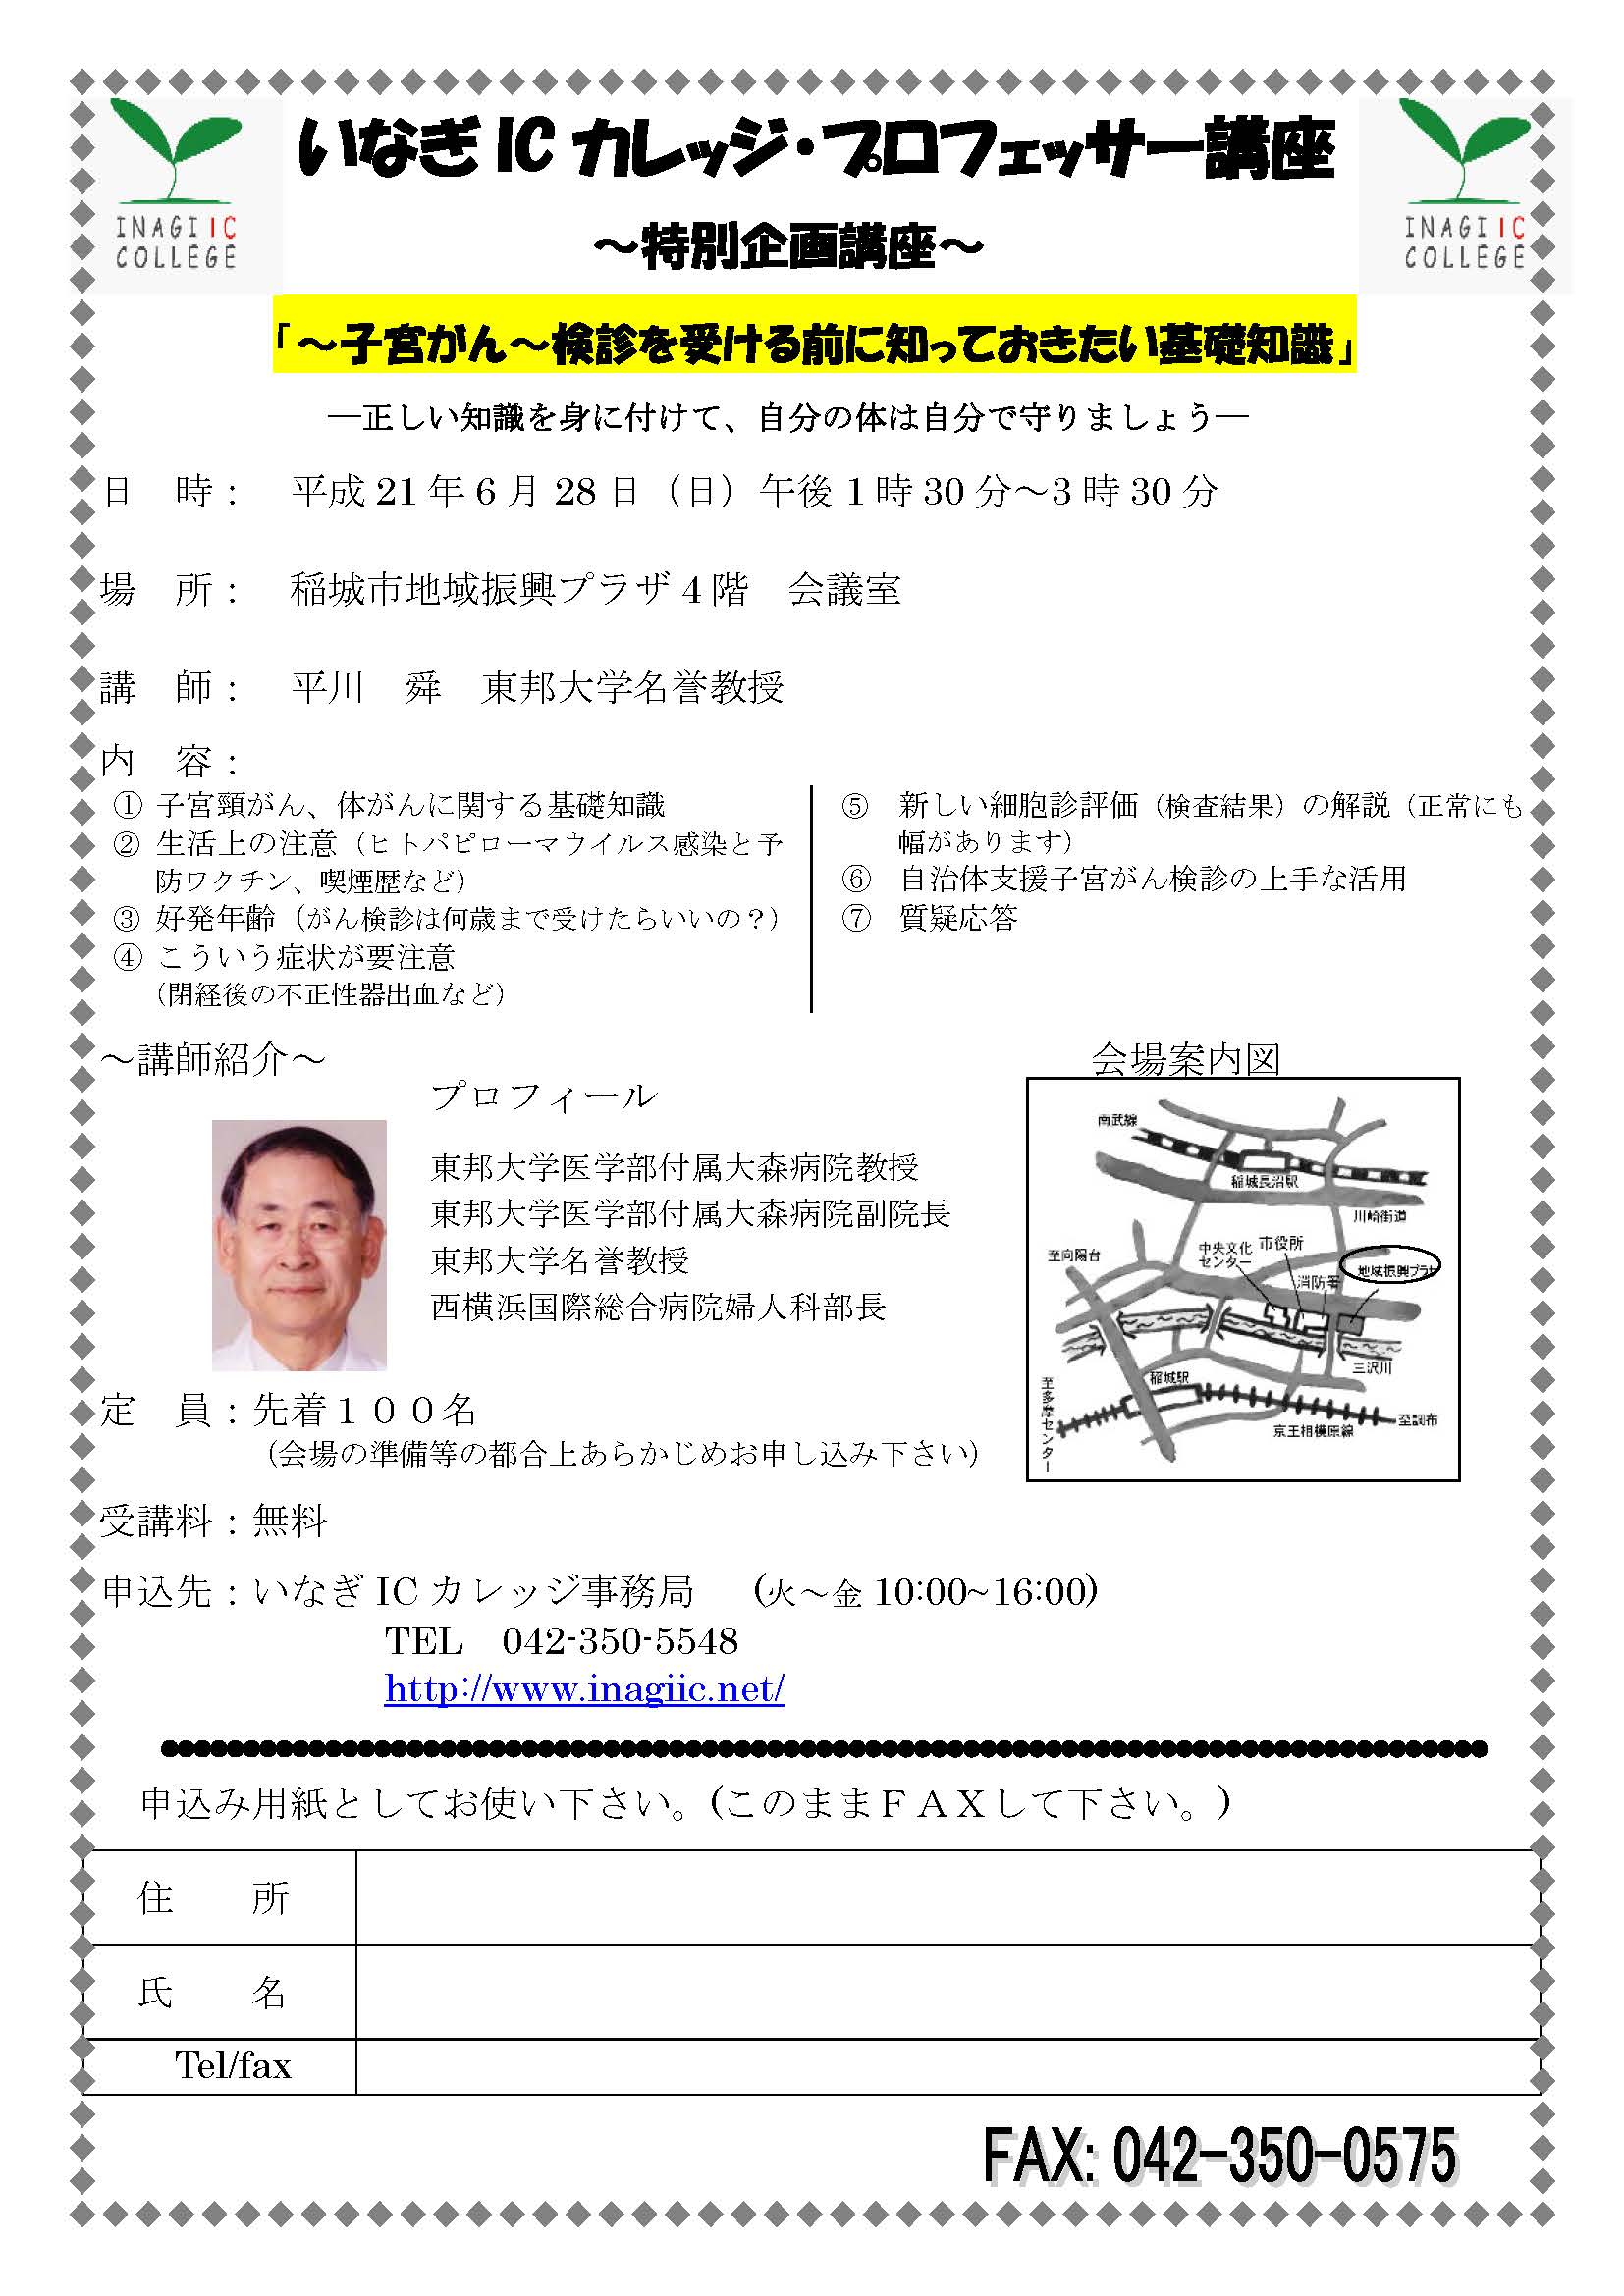 INAGI IC
COLLEGE
いなぎ IC カレッジ・プロフェッサー講座
INAGI IC
COLLEGE
～特別企画講座～
「～子宮がん～検診を受ける前に知っておきたい基礎知識」
―正しい知識を身に付けて、自分の体は自分で守りましょう―
日　時：　平成 21 年 6 月 28 日（日）午後 1 時 30 分～3 時 30 分
場　所：　稲城市地域振興プラザ 4 階　会議室
講　師：　平川　舜　東邦大学名誉教授
内　容：
① 子宮頸がん、体がんに関する基礎知識
② 生活上の注意（ヒトパピローマウイルス感染と予
防ワクチン、喫煙歴など）
③ 好発年齢（がん検診は何歳まで受けたらいいの？）
④ こういう症状が要注意
（閉経後の不正性器出血など）
⑤　新しい細胞診評価（検査結果）の解説（正常にも
幅があります）
⑥　自治体支援子宮がん検診の上手な活用
⑦　質疑応答
～講師紹介～
プロフィール
東邦大学医学部付属大森病院教授
東邦大学医学部付属大森病院副院長
東邦大学名誉教授
西横浜国際総合病院婦人科部長
会場案内図
南武線
稲城長沼駅
川崎街道
至向陽台
中央文化
センター
市役所
消防署
地域振興プラザ
三沢川
稲城駅
至多摩センター
京王相模原線
至調布
定　員：先着１００名
（会場の準備等の都合上あらかじめお申し込み下さい）
受講料：無料
申込先：いなぎ IC カレッジ事務局　(火～金 10:00~16:00)
TEL　042-350-5548
http://www.inagiic.net/
申込み用紙としてお使い下さい。(このままＦＡＸして下さい。)
住　　所
氏　　名
Tel/fax
FAX: 042-350-0575